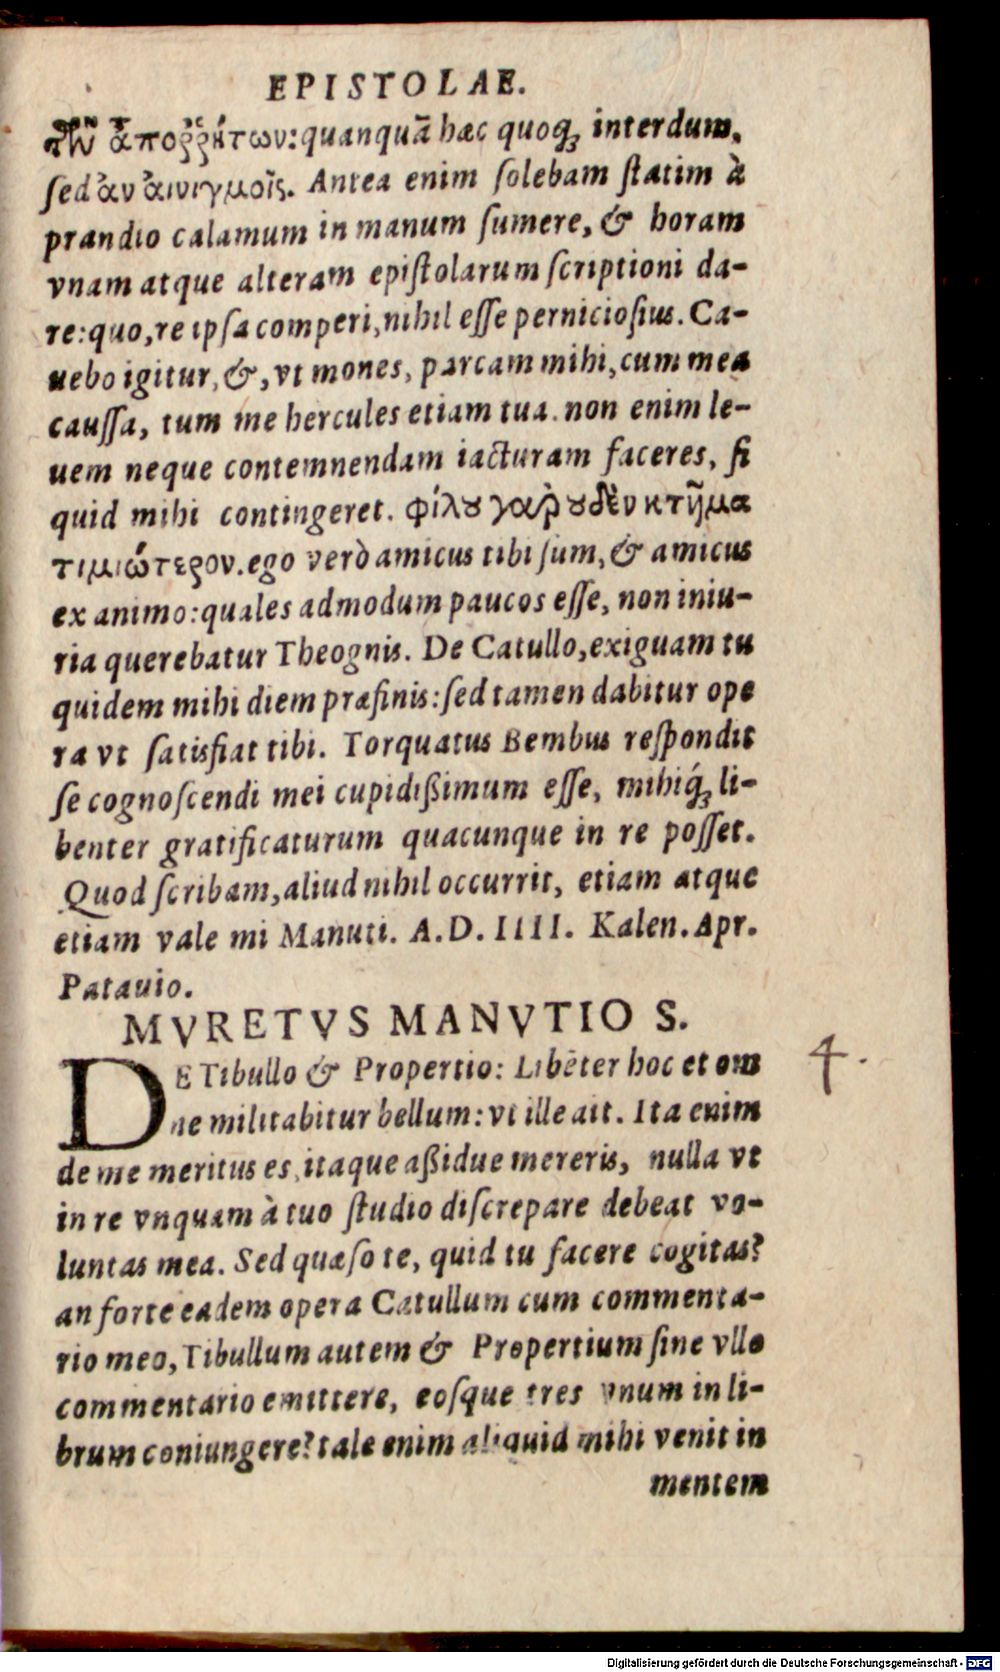 EPISTOLAE.
τῶν ἀποῤῥήτων: quanquā hæc quoq; interdum,
ſed ἀν αἰνιγμοῖς. Antea enim ſolebam ſtatim à
prandio calamum in manum ſumere, & horam
vnam atque alteram epiſtolarum ſcriptioni da-
re: quo, re ipſa comperi, nihil eſſe pernicioſius. Ca-
uebo igitur, &, vt mones, parcam mihi, cum mea
cauſſa, tum me hercules etiam tua. non enim le-
uem neque contemnendam iacturam faceres, ſi
quid mihi contingeret. φίλου γαρ̀ ουδὲν κτῆμα
τιμιώτερον. ego verò amicus tibi ſum, & amicus
ex animo: quales admodum paucos eſſe, non iniu-
ria querebatur Theognis. De Catullo, exiguam tu
quidem mihi diem præfinis: ſed tamen dabitur ope
ra vt ſatisfiat tibi. Torquatus Bembus reſpondit
ſe cognoſcendi mei cupidißimum eſſe, mihiq́; li-
benter gratificaturum quacunque in re poſſet.
Quod ſcribam, aliud nihil occurrit, etiam atque
etiam vale mi Manuti. A.D. IIII. Kalen. Apr.
Patauio.
MVRETVS MANVTIO S.
DE Tibullo & Propertio: Libēter hoc et om
ne militabitur bellum: vt ille ait. Ita enim
de me meritus es, itaque aßidue mereris, nulla vt
in re vnquam à tuo ſtudio diſcrepare debeat vo-
luntas mea. Sed quæſo te, quid tu facere cogitas?
an forte eadem opera Catullum cum commenta-
rio meo, Tibullum autem & Propertium ſine vllo
commentario emittere, eoſque tres vnum in li-
brum coniungere? tale enim aliquid mihi venit in
mentem
4.
Digitalisierung gefördert durch die Deutsche Forschungsgemeinschaft - DFG